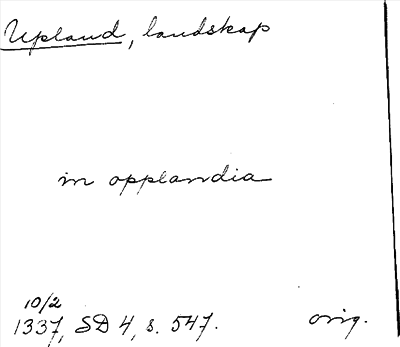 Upland, landskap
in opplandia
10/2
1337, SD 4, s. 547. orig.